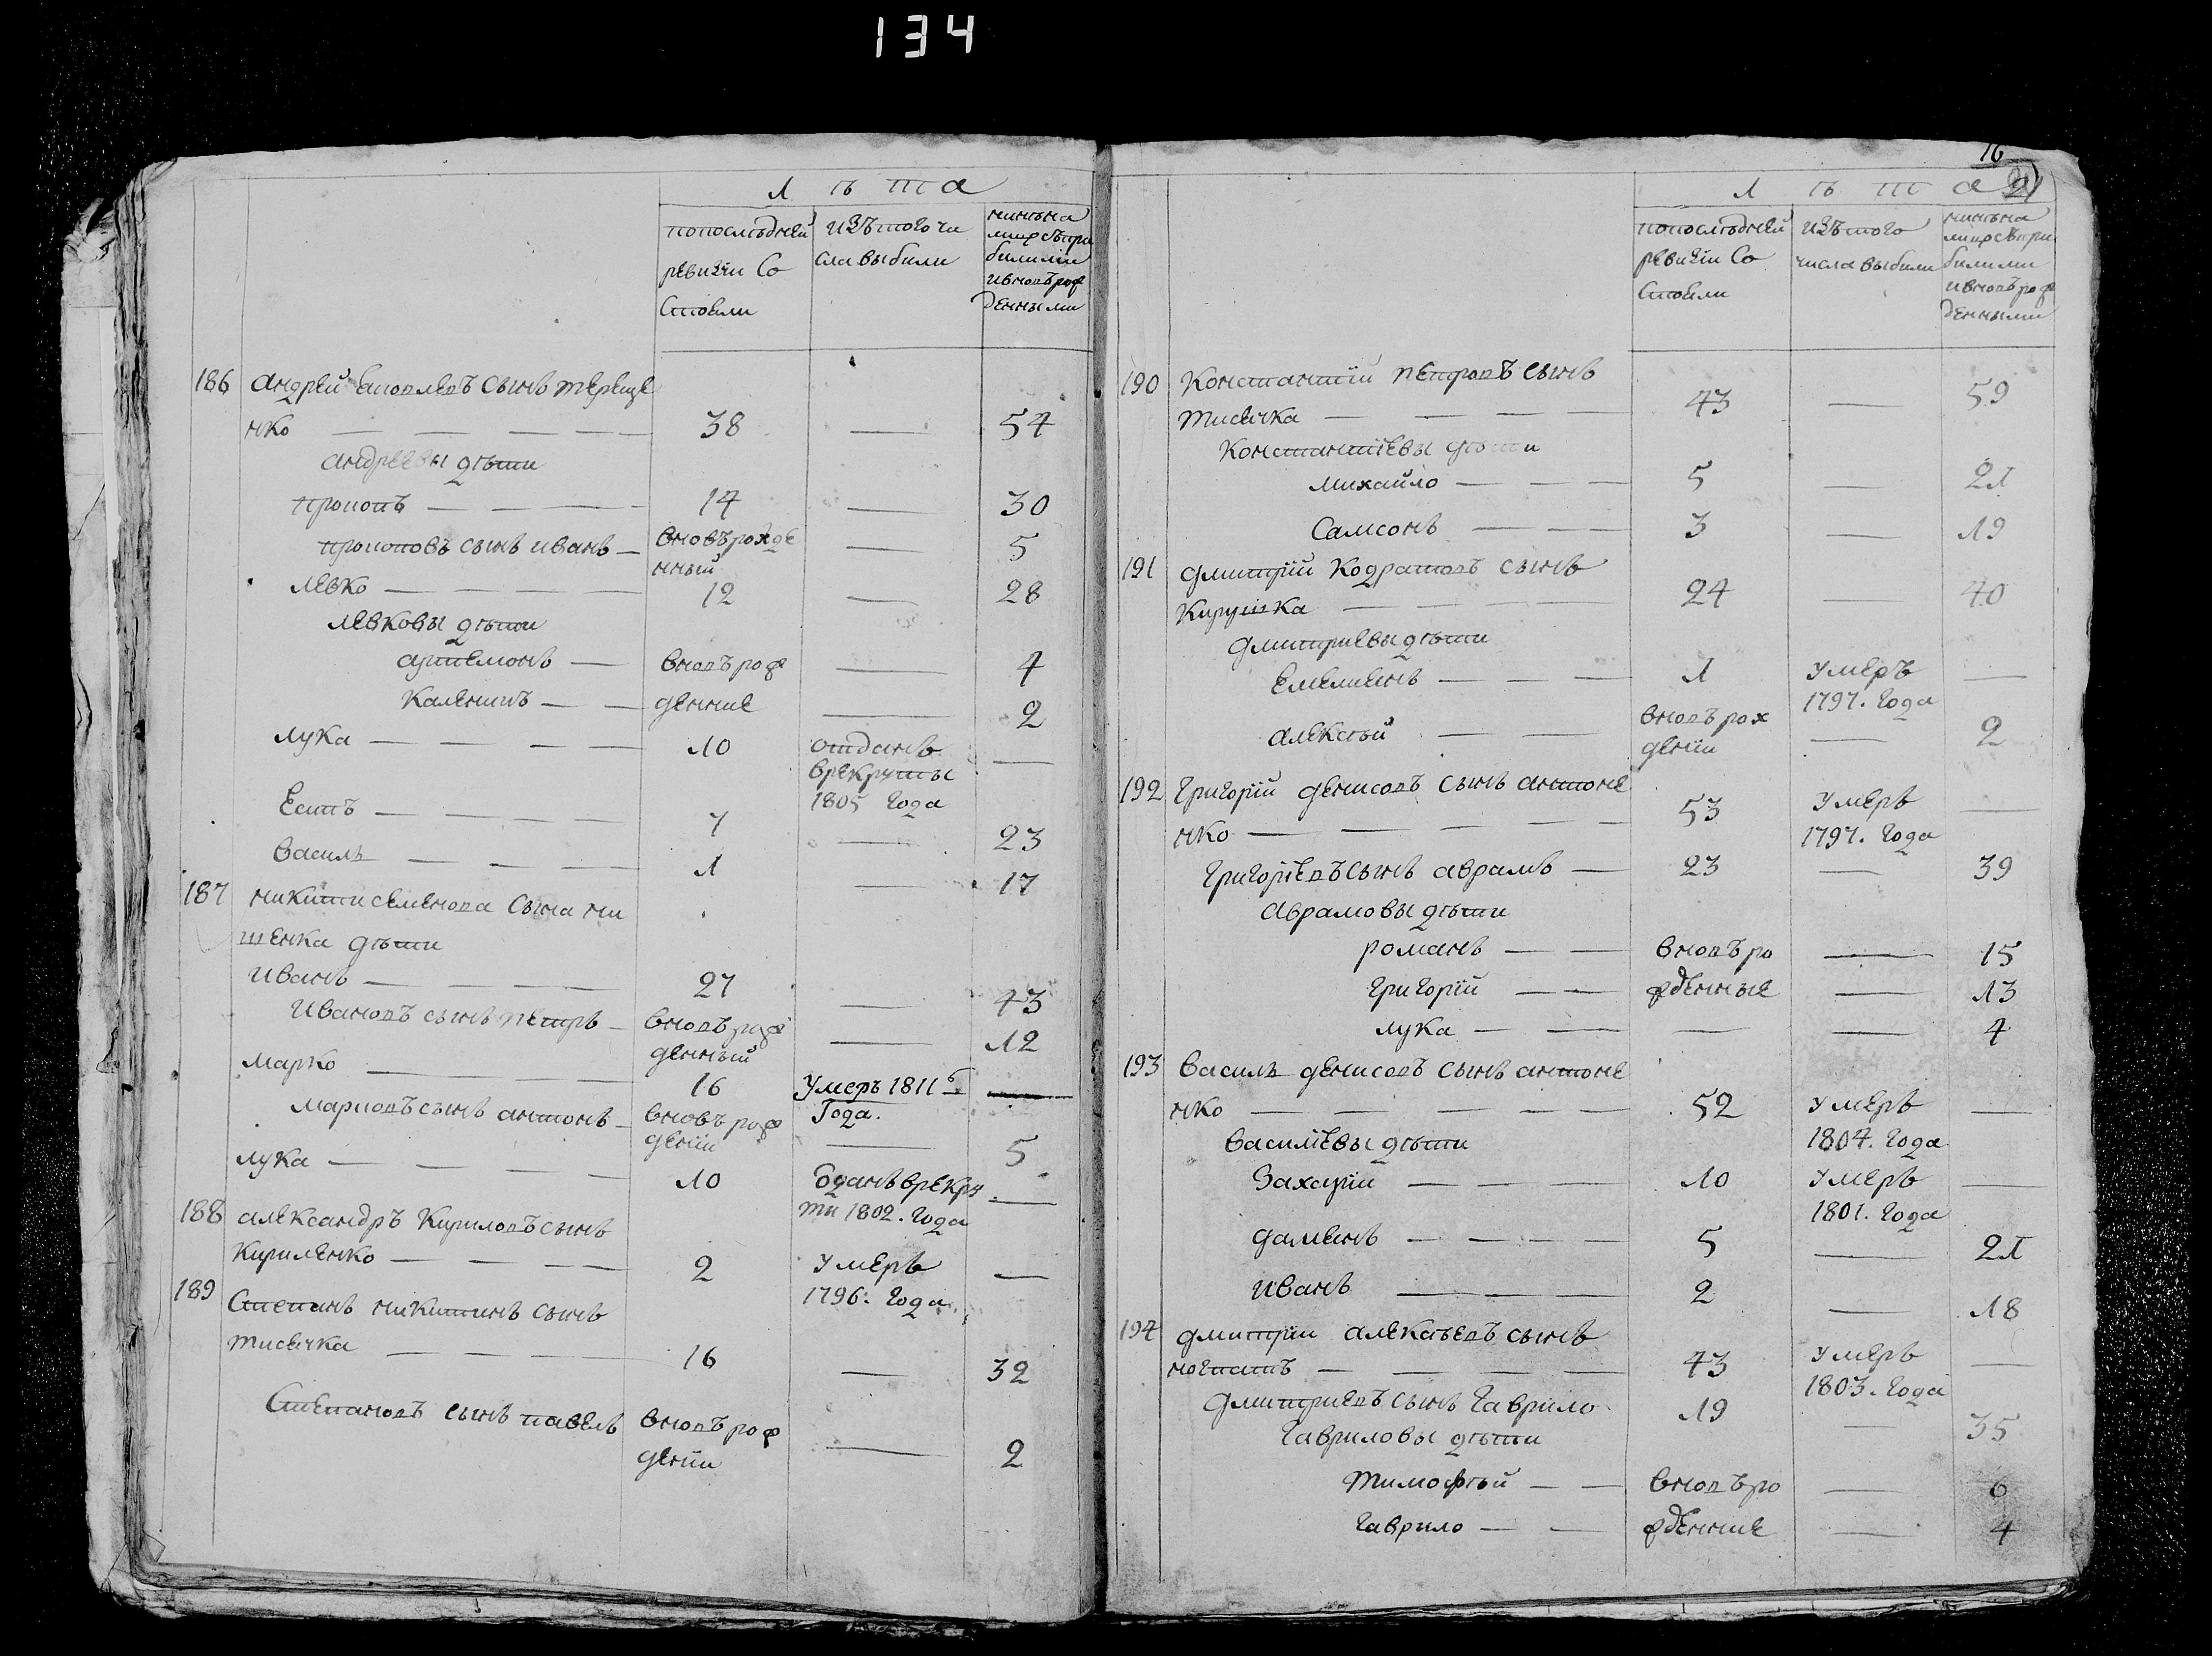 134
Л ѣ т а
попослѣдней
ревизіи Со
стояли
изътого чи
славыбили
нинѣна
лицосъпри
билими
ивновьрож
денными
186 андрей савъ сынъ тереще
нко — 38 — 54
андреевы дѣти
прокопъ — 14 — 30
прокоповъ сынъ иванъ — вновьрожде
нный — 5
левко — 12 — 28
левковы дѣти
артемонъ — вновьрож — 4
каленикъ — дение — 2
лука — 10 отданъ —
врекруты
1805 Года
Естъ — 7 — 23
василь — 1 — 17
187 никити семенова сына ни
шенка дѣти
иванъ — 27 — 43
ивановъ сынъ петръ — вновьрож
денный — 12
марко — 16 Умеръ 1811г —
Года.
марковъ сынъ антонъ — вновьрож
деніи — 5
лука — 10 Отданъ врекру —
ти 1802. Года
188 александръ кириловъ сынъ
кириленко — 2 Умеръ —
1796. Года
189 Степанъ никитинъ сынъ
тисячка — 16 — 32
Степановъ сынъ павелъ вновьрож
деніи — 2
16
21
Л ѣ т а
попослѣдней
ревизіи Со
стояли
изътого
числавыбили
нинѣна
лицосъпри
билими
ивновьрож
денными
190 Константій петровъ сынъ
тисячка — 43 — 59
Константіевы дѣти
михайло — 5 — 21
Самсонъ — 3 — 19
191 дмитрій кодратовъ сынъ
кирушка — 24 — 40
дмитриевы дѣти
Емелиянъ — 1 Умеръ —
1797. Года
алексѣй — вновьрож
деніи — 2
192 Григорій денисовъ сынъ антоне
нко — 53 Умеръ —
1797. Года
Григоріевъ сынъ аврамъ — 23 — 39
аврамовы дѣти
романъ — вновьро — 15
Григорій — жденные — 13
лука — — — 4
193 василь денисовъ сынъ антоне
нко — 52 Умеръ —
1804. Года
василіевы дѣти
Захарій — 10 Умеръ —
1801. Года
дамянъ — 5 — 21
иванъ — 2 — 18
194 дмитріи алексѣевъ сынъ
43 Умеръ —
1803. Года
дмитриевъ сынъ Гаврило 19 — 35
Гавриловы дѣти
тимофѣй — вновьро — 6
Гаврило — жденние — 4